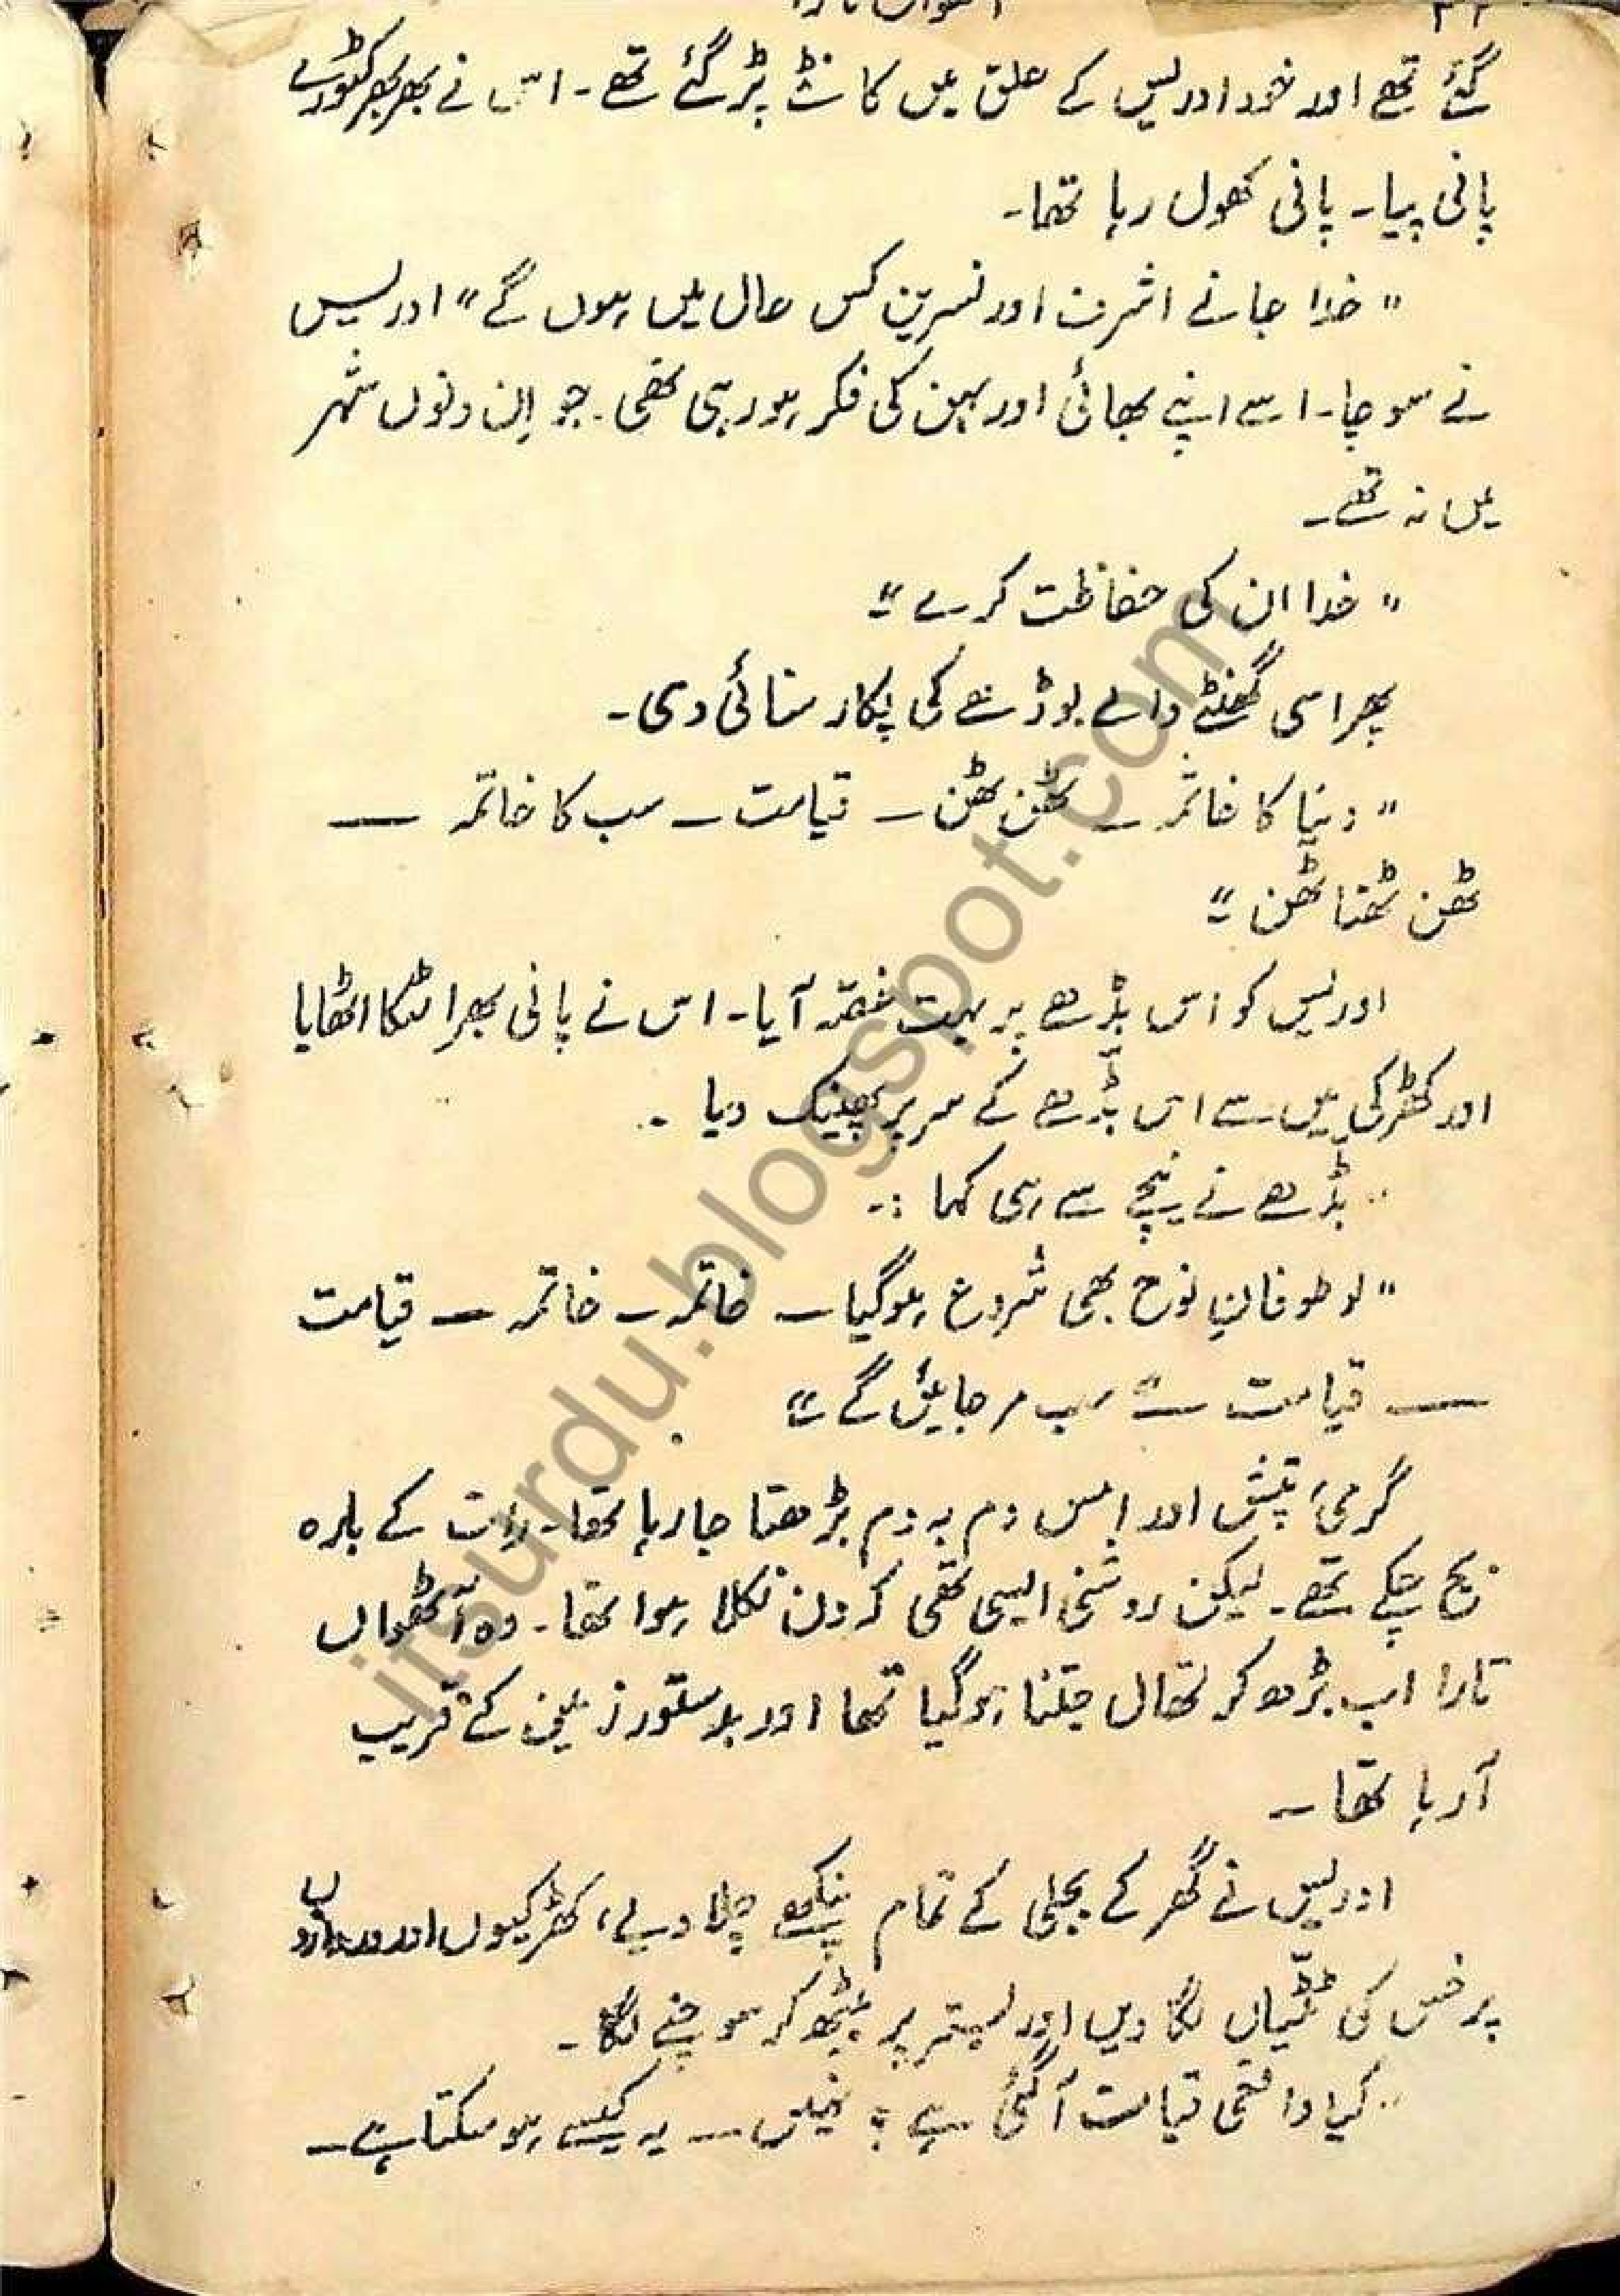 گئے تھے اور خود ادریس کے حلق میں کانٹے پڑ گئے تھے۔ اس نے بھر بھر کٹورے
پانی پیا۔ پانی کھول رہا تھا۔
"خدا جانے اشرف اور نسرین کس حال میں ہوں گے" ادریس
نے سوچا۔ اسے اپنے بھائی اور بہن کی فکر ہو رہی تھی۔ جو اِن دنوں شہر
میں نہ تھے۔
"خدا ان کی حفاظت کرے"۔
پھر اسی گھنٹے والے بوڑھے کی پکار سنائی دی۔
"دنیا کا خاتمہ ــ ٹھن ٹھن ــ قیامت ــ سب کا خاتمہ ــ
ٹھن ٹھنا ٹھن"۔
ادریس کو اس بڈّھے پر بہت غصّہ آیا۔ اس نے پانی بھرا مٹکا اٹھایا
اور کھڑکی میں سے اس بڈّھے کے سر پر پھینک دیا۔
بڈّھے نے نیچے سے ہی کہا :۔
"لو طوفانِ نوح بھی شروع ہو گیا ــ خاتمہ ــ خاتمہ ــ قیامت
ــ قیامت ــ سب مر جائیں گے"۔
گرمی، تپش اور حبس دم بہ دم بڑھتا جا رہا تھا۔ رات کے بارہ
بج چکے تھے۔ لیکن روشنی ایسی تھی کہ دن نکلا ہوا تھا۔ وہ آٹھواں
تارا اب بڑھ کر تھال جتنا ہو گیا تھا اور بدستور زمین کے قریب
آ رہا تھا ــ
ادریس نے گھر کے بجلی کے تمام پنکھے چلا دیے، کھڑکیوں اور دروازوں
پر خس کی ٹٹّیاں لگا دیں اور بستر پر بیٹھ کر سوچنے لگا۔
"کیا واقعی قیامت آ گئی ہے؟ نہیں ــ یہ کیسے ہو سکتا ہے ــ
itsurdu.blogspot.com